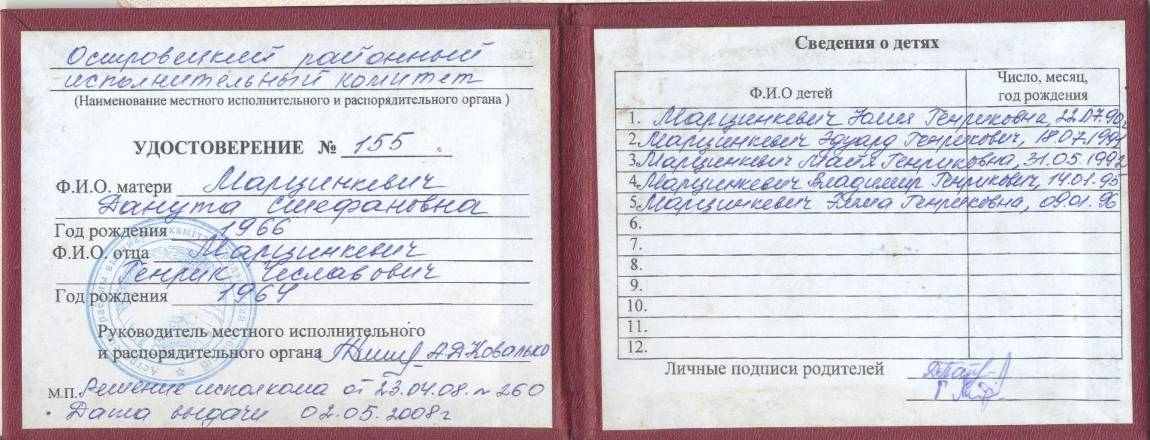 Островецкий районный
исполнительный комитет
(Наименование местного исполнительного и распорядительного органа )
УДОСТОВЕРЕНИЕ № 155
Ф.И.О. матери Марцинкевич
Данута Стефановна
Год рождения 1966
Ф.И.О. отца Марцинкевич
Генрик Чеславович
Год рождения 1964
Руководитель местного исполнительного
и распорядительного органа А.Д.Ковалько
М.П. Решение исполкома от 23.04.08. № 260
Дата выдачи 02.05.2008г
Сведения о детях
Ф.И.О детей
Число, месяц,
год рождения
1. Марцинкевич Юлия Генриковна, 22.07.90г
2. Марцинкевич Эдуард Генрикович, 18.07.1991
3. Марцинкевич Майя Генриковна, 31.05.1992
4. Марцинкевич Владимир Генрикович, 14.01.95
5. Марцинкевич Генриковна, 09.01.96
6.
7.
8.
9.
10.
11.
12.
Личные подписи родителей